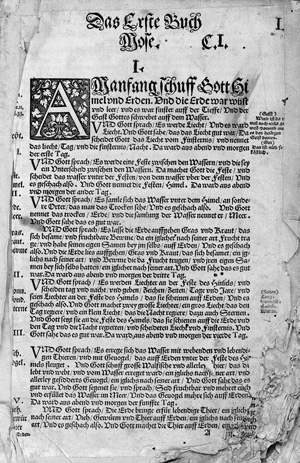 Das Erste Buch
Mose. C. I.
I.
I.
AManfang schuff Gott Hi
mel vnd Erden. Vnd die Erde war wüst
vnd leer / vnd es war finster auff der Tieffe / Vnd der
Geist Gottes schwebet auff dem Wasser.
VND Gott sprach / Es werde Liecht / Vnd es ward
Liecht. Vnd Gott sahe / das das Liecht gut war / Da
scheidet Gott das Liecht vom Finsternis / vnd nennet
das liecht / Tag / vnd die finsternis / Nacht. Da ward aus abend vnd morgen
der erste Tag.
VND Gott sprach / Es werde eine Feste zwischen den Wassern / vnd die sey
ein Unterscheid zwischen den Wassern. Da machet Gott die Feste / vnd
scheidet das wasser vnter der Festen / von dem wasser vber der Festen / Vnd
es geschach also. Vnd Gott nennet die Festen / Himel. Da ward aus abend
vnd morgen der ander Tag.
VND Gott sprach / Es samle sich das Wasser vnter dem Himel / an sonde-
re Orter / das man das Trocken sehe / Vnd es geschach also. Vnd Gott
nennet das trocken / Erde / vnd die samlung der Wasser nennet er / Meer.
Vnd Gott sahe das es gut war.
VND Gott sprach / Es lasse die Erde auffgehen Gras vnd Kraut / das
sich besame / vnd fruchtbare Bewme / da ein jglicher nach seiner art Frucht tra-
ge / vnd habe seinen eigen Samen bey jm selbs / auff Erden / Vnd es geschach
also. Vnd die Erde lies auffgehen / Gras vnd Kraut / das sich besamet / ein
jglichs nach seiner art / vnd Bewme die da Frucht trugen / vnd jren eigen Sa-
men bey sich selbs hatten / ein jglicher nach seiner art. Vnd Gott sahe das es gut
war. Da ward aus abend vnd morgen der dritte Tag.
VND Gott sprach / Es werden Liechter an der Feste des Himels / vnd
scheiden tag vnd nacht / vnd geben / Zeichen / Zeiten / Tage vnd Jare / vnd
seien Liechter an der Feste des Himels / das sie scheinen auff Erden / Vnd es
geschach also. Vnd Gott machet zwey grosse Liechter / ein gros Liecht / das den
Tag regiere / vnd ein klein Liecht / das die Nacht regiere / dazu auch Sternen.
Vnd Gott setzt sie an die Feste des Himels / das sie schienen auff die Erden vnd
den Tag vnd die Nacht regierten / vnd scheideten Liecht vnd Finsternis. Vnd
Gott sahe das es gut war. Da ward aus abend vnd morgen der vierde Tag.
III.
VND Gott sprach / Es errege sich das Wasser mit webenden vnd lebendi-
gen Thieren / vnd mit Geuogel / das auff Erden vnter der Feste des Hi-
mels fleuget. Vnd Gott schuff grosse Walfische vnd allerley
lebt vnd webt / vnd vom Wasser erreget ward / ein jglichs nach seiner art / vnd
allerley gefidderts Geuogel / ein jglichs nach seiner art / Vnd Gott sahe das es
gut war. Vnd Gott segenet sie / vnd sprach / Seid fruchtbar vnd mehret euch
vnd erfüllet das Wasser im Meer / Vnd das Geuogel mehre sich auff Erden.
Da ward aus abend vnd morgen der fünffte Tag.
VND Gott sprach / Die Erde bringe erfür lebendige Thier / ein jglichs
nach seiner art / Vieh / Gewürm vnd Thier auff Erden / ein jglichs nach